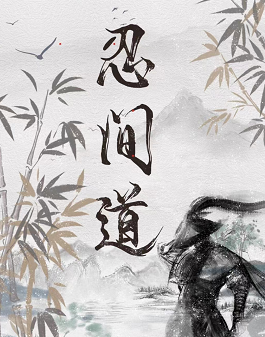 忍间道